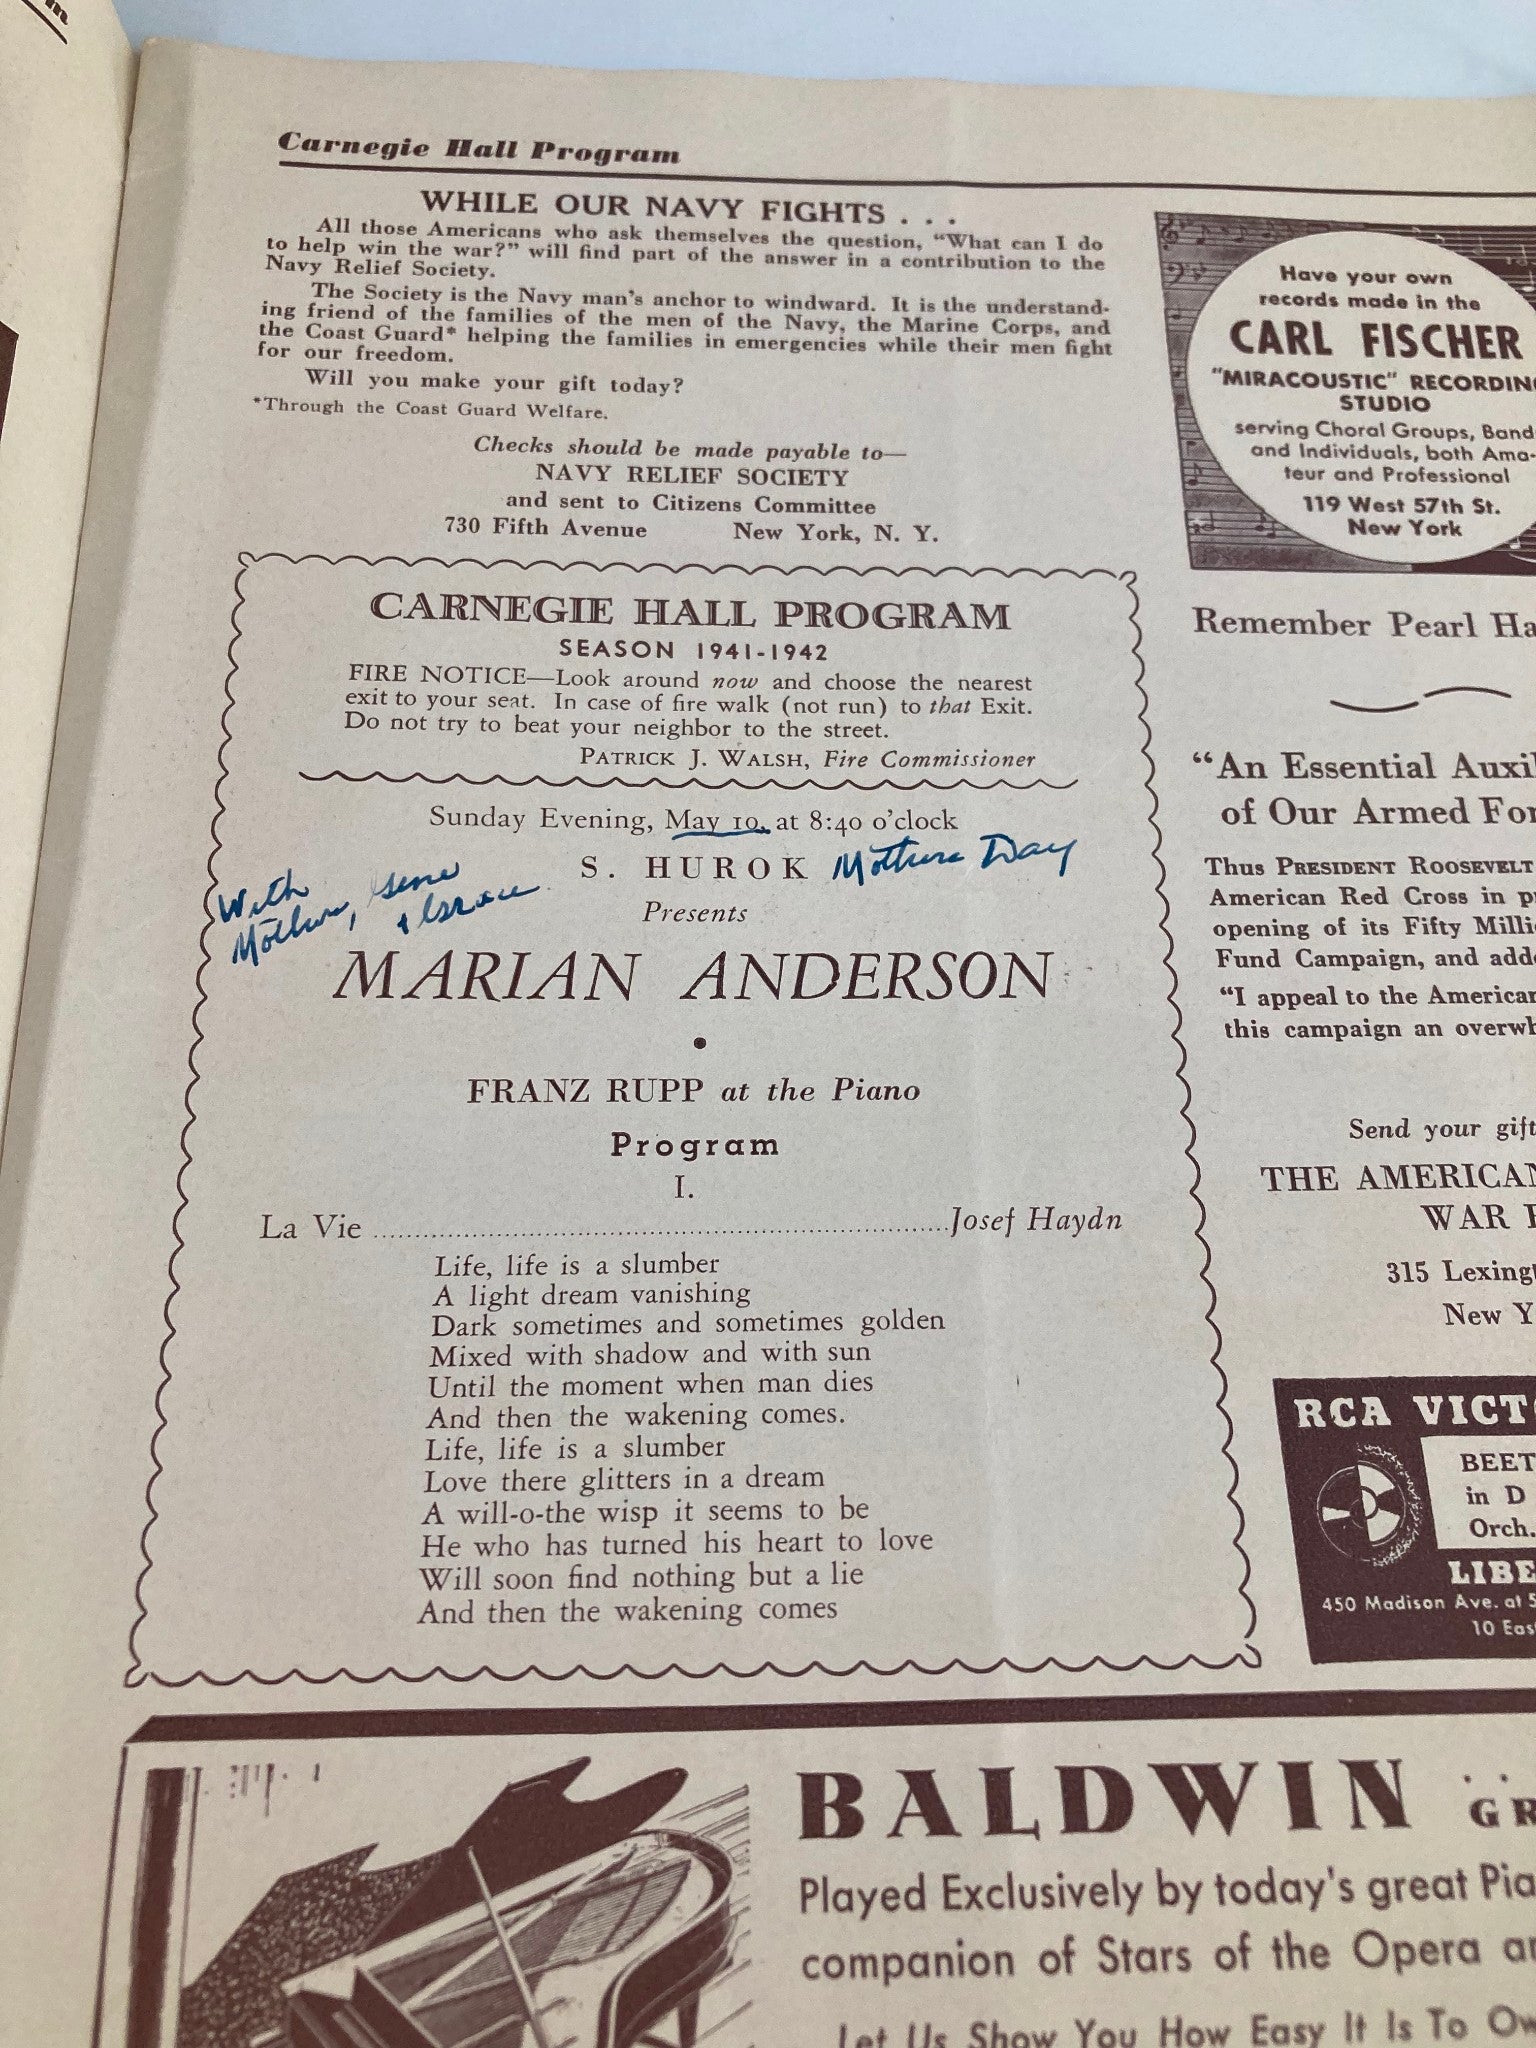 m
Carnegie Hall Program
WHILE OUR NAVY FIGHTS . . .
All those Americans who ask themselves the question, “What can I do
to help win the war?” will find part of the answer in a contribution to the
Navy Relief Society.
The Society is the Navy man's anchor to windward. It is the understand-
ing friend of the families of the men of the Navy, the Marine Corps, and
the Coast Guard* helping the families in emergencies while their men fight
for our freedom.
Will you make your gift today?
*Through the Coast Guard Welfare.
Checks should be made payable to—
NAVY RELIEF SOCIETY
and sent to Citizens Committee
730 Fifth Avenue New York, N. Y.
CARNEGIE HALL PROGRAM
SEASON 1941-1942
FIRE NOTICE—Look around now and choose the nearest
exit to your seat. In case of fire walk (not run) to that Exit.
Do not try to beat your neighbor to the street.
PATRICK J. WALSH, Fire Commissioner
Sunday Evening, May 10, at 8:40 o'clock
S. HUROK Mothers Day
With
Mother, Gene
&
Presents
MARIAN ANDERSON
•
FRANZ RUPP at the Piano
Program
I.
La Vie ........ Josef Haydn
Life, life is a slumber
A light dream vanishing
Dark sometimes and sometimes golden
Mixed with shadow and with sun
Until the moment when man dies
And then the wakening comes.
Life, life is a slumber
Love there glitters in a dream
A will-o-the wisp it seems to be
He who has turned his heart to love
Will soon find nothing but a lie
And then the wakening comes
Have your own
records made in the
CARL FISCHER
"MIRACOUSTIC" RECORDING
STUDIO
serving Choral Groups, Band
and Individuals, both Ama-
teur and Professional
119 West 57th St.
New York
Remember Pearl Ha
“An Essential Auxil
of Our Armed For
Thus PRESIDENT ROOSEVELT
American Red Cross in p
opening of its Fifty Milli
Fund Campaign, and add
“I appeal to the American
this campaign an overwh
Send your gift
THE AMERICAN
WAR
315 Lexing
New Y
RCA VICT
BEET
in D
Orch.
LIBE
450 Madison Ave. at 5
10 Eas
BALDWIN
GR
Played Exclusively by today's great Pia
companion of Stars of the Opera an
Let Us Show You How Easy It Is To Ow